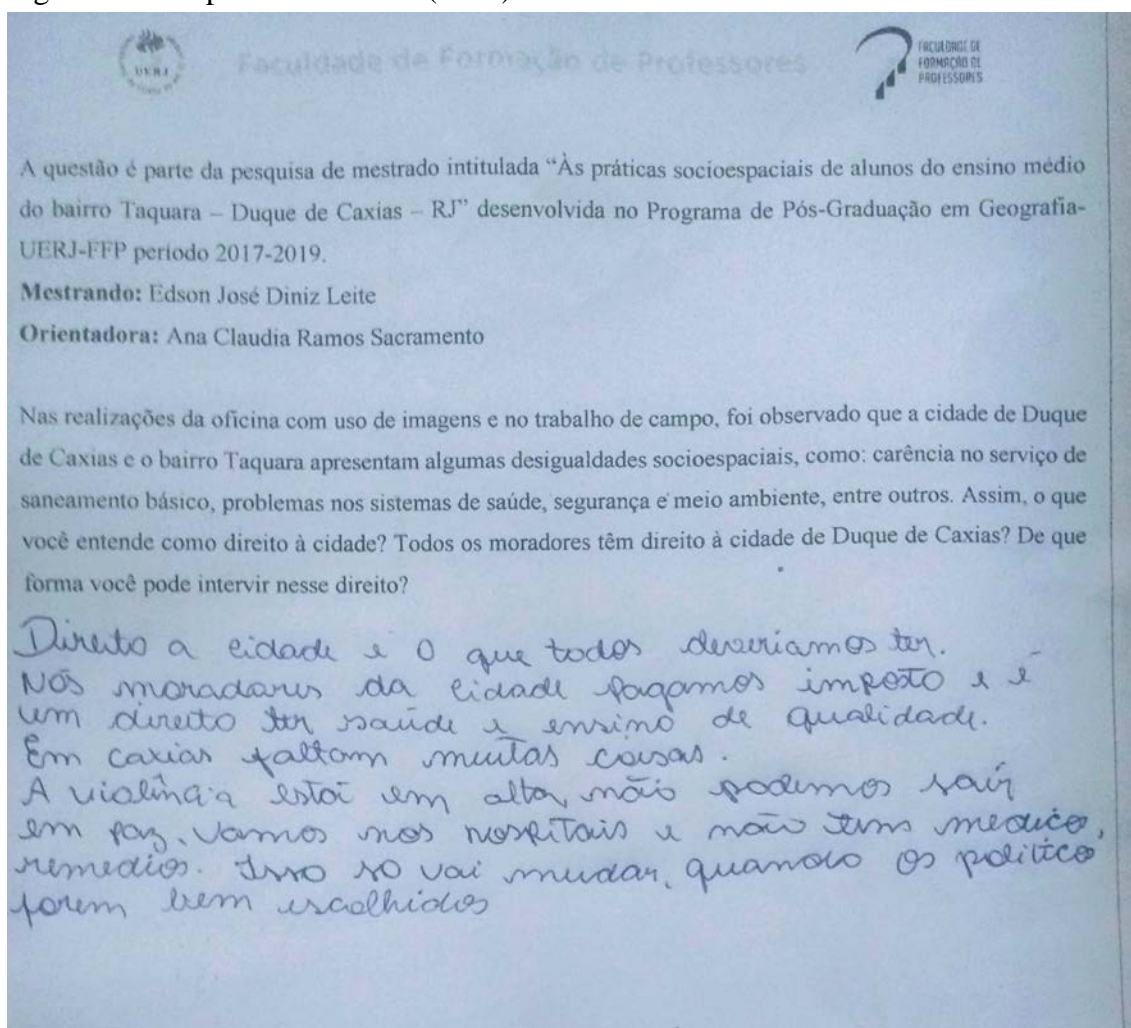 UERJ
Faculdade de Formação de Professores
FACULDADE DE
FORMAÇÃO DE
PROFESSORES
A questão é parte da pesquisa de mestrado intitulada “Às práticas socioespaciais de alunos do ensino médio
do bairro Taquara – Duque de Caxias – RJ” desenvolvida no Programa de Pós-Graduação em Geografia-
UERJ-FFP período 2017-2019.
Mestrando: Edson José Diniz Leite
Orientadora: Ana Claudia Ramos Sacramento
Nas realizações da oficina com uso de imagens e no trabalho de campo, foi observado que a cidade de Duque
de Caxias e o bairro Taquara apresentam algumas desigualdades socioespaciais, como: carência no serviço de
saneamento básico, problemas nos sistemas de saúde, segurança e meio ambiente, entre outros. Assim, o que
você entende como direito à cidade? Todos os moradores têm direito à cidade de Duque de Caxias? De que
forma você pode intervir nesse direito?
Direito a cidade e o que todos deveriamos ter.
Nós moradores da cidade pagamos imposto e é
um direito ter saúde e ensino de qualidade.
Em caxias faltam muitas coisas.
A violência está em alta, não podemos sair
em paz. Vamos nos hospitais e não tem medico,
remedios. Isso so vai mudar, quando os politico
forem bem escolhidos